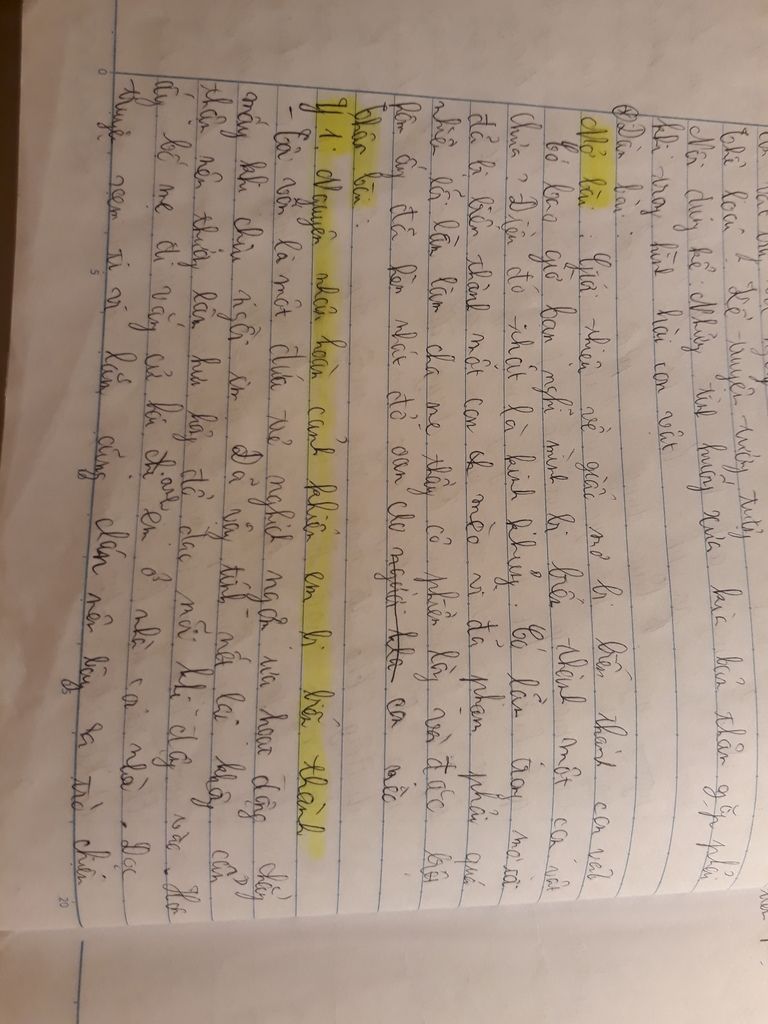 Thể loại: Kể chuyện tưởng tượng
Nội dung kể: Những tình huống xưa kia bản thân gặp phải
khi trong hình hài con vật
Dàn bài:
Mở bài: Giới thiệu về giấc mơ bị biến thành con vật
Có bao giờ bạn nghĩ mình bị biến thành một con vật
chưa? Điều đó thật là kinh khủng. Có lần trong mơ tôi
đã bị biến thành một con mèo vì đã phạm phải quá
nhiều lỗi lầm làm cha mẹ thầy cô phiền lòng và được
hôm ấy đã hèn nhát đổ oan cho người con mèo
Thân bài:
Ý 1: Nguyên nhân hoàn cảnh khiến em bị biến thành
- Tôi vốn là một đứa trẻ nghịch ngợm ưa hoạt động chẳng
mấy khi chịu ngồi im. Đã vậy tính nết lại không cẩn
thận nên thường làm hư hỏng đồ đạc mỗi khi động vào. Hôm
ấy bố mẹ đi vắng cử hai chị em ở nhà coi nhà. Đọc
truyện xem ti vi lắm cũng chán nên bày ra trò chiến